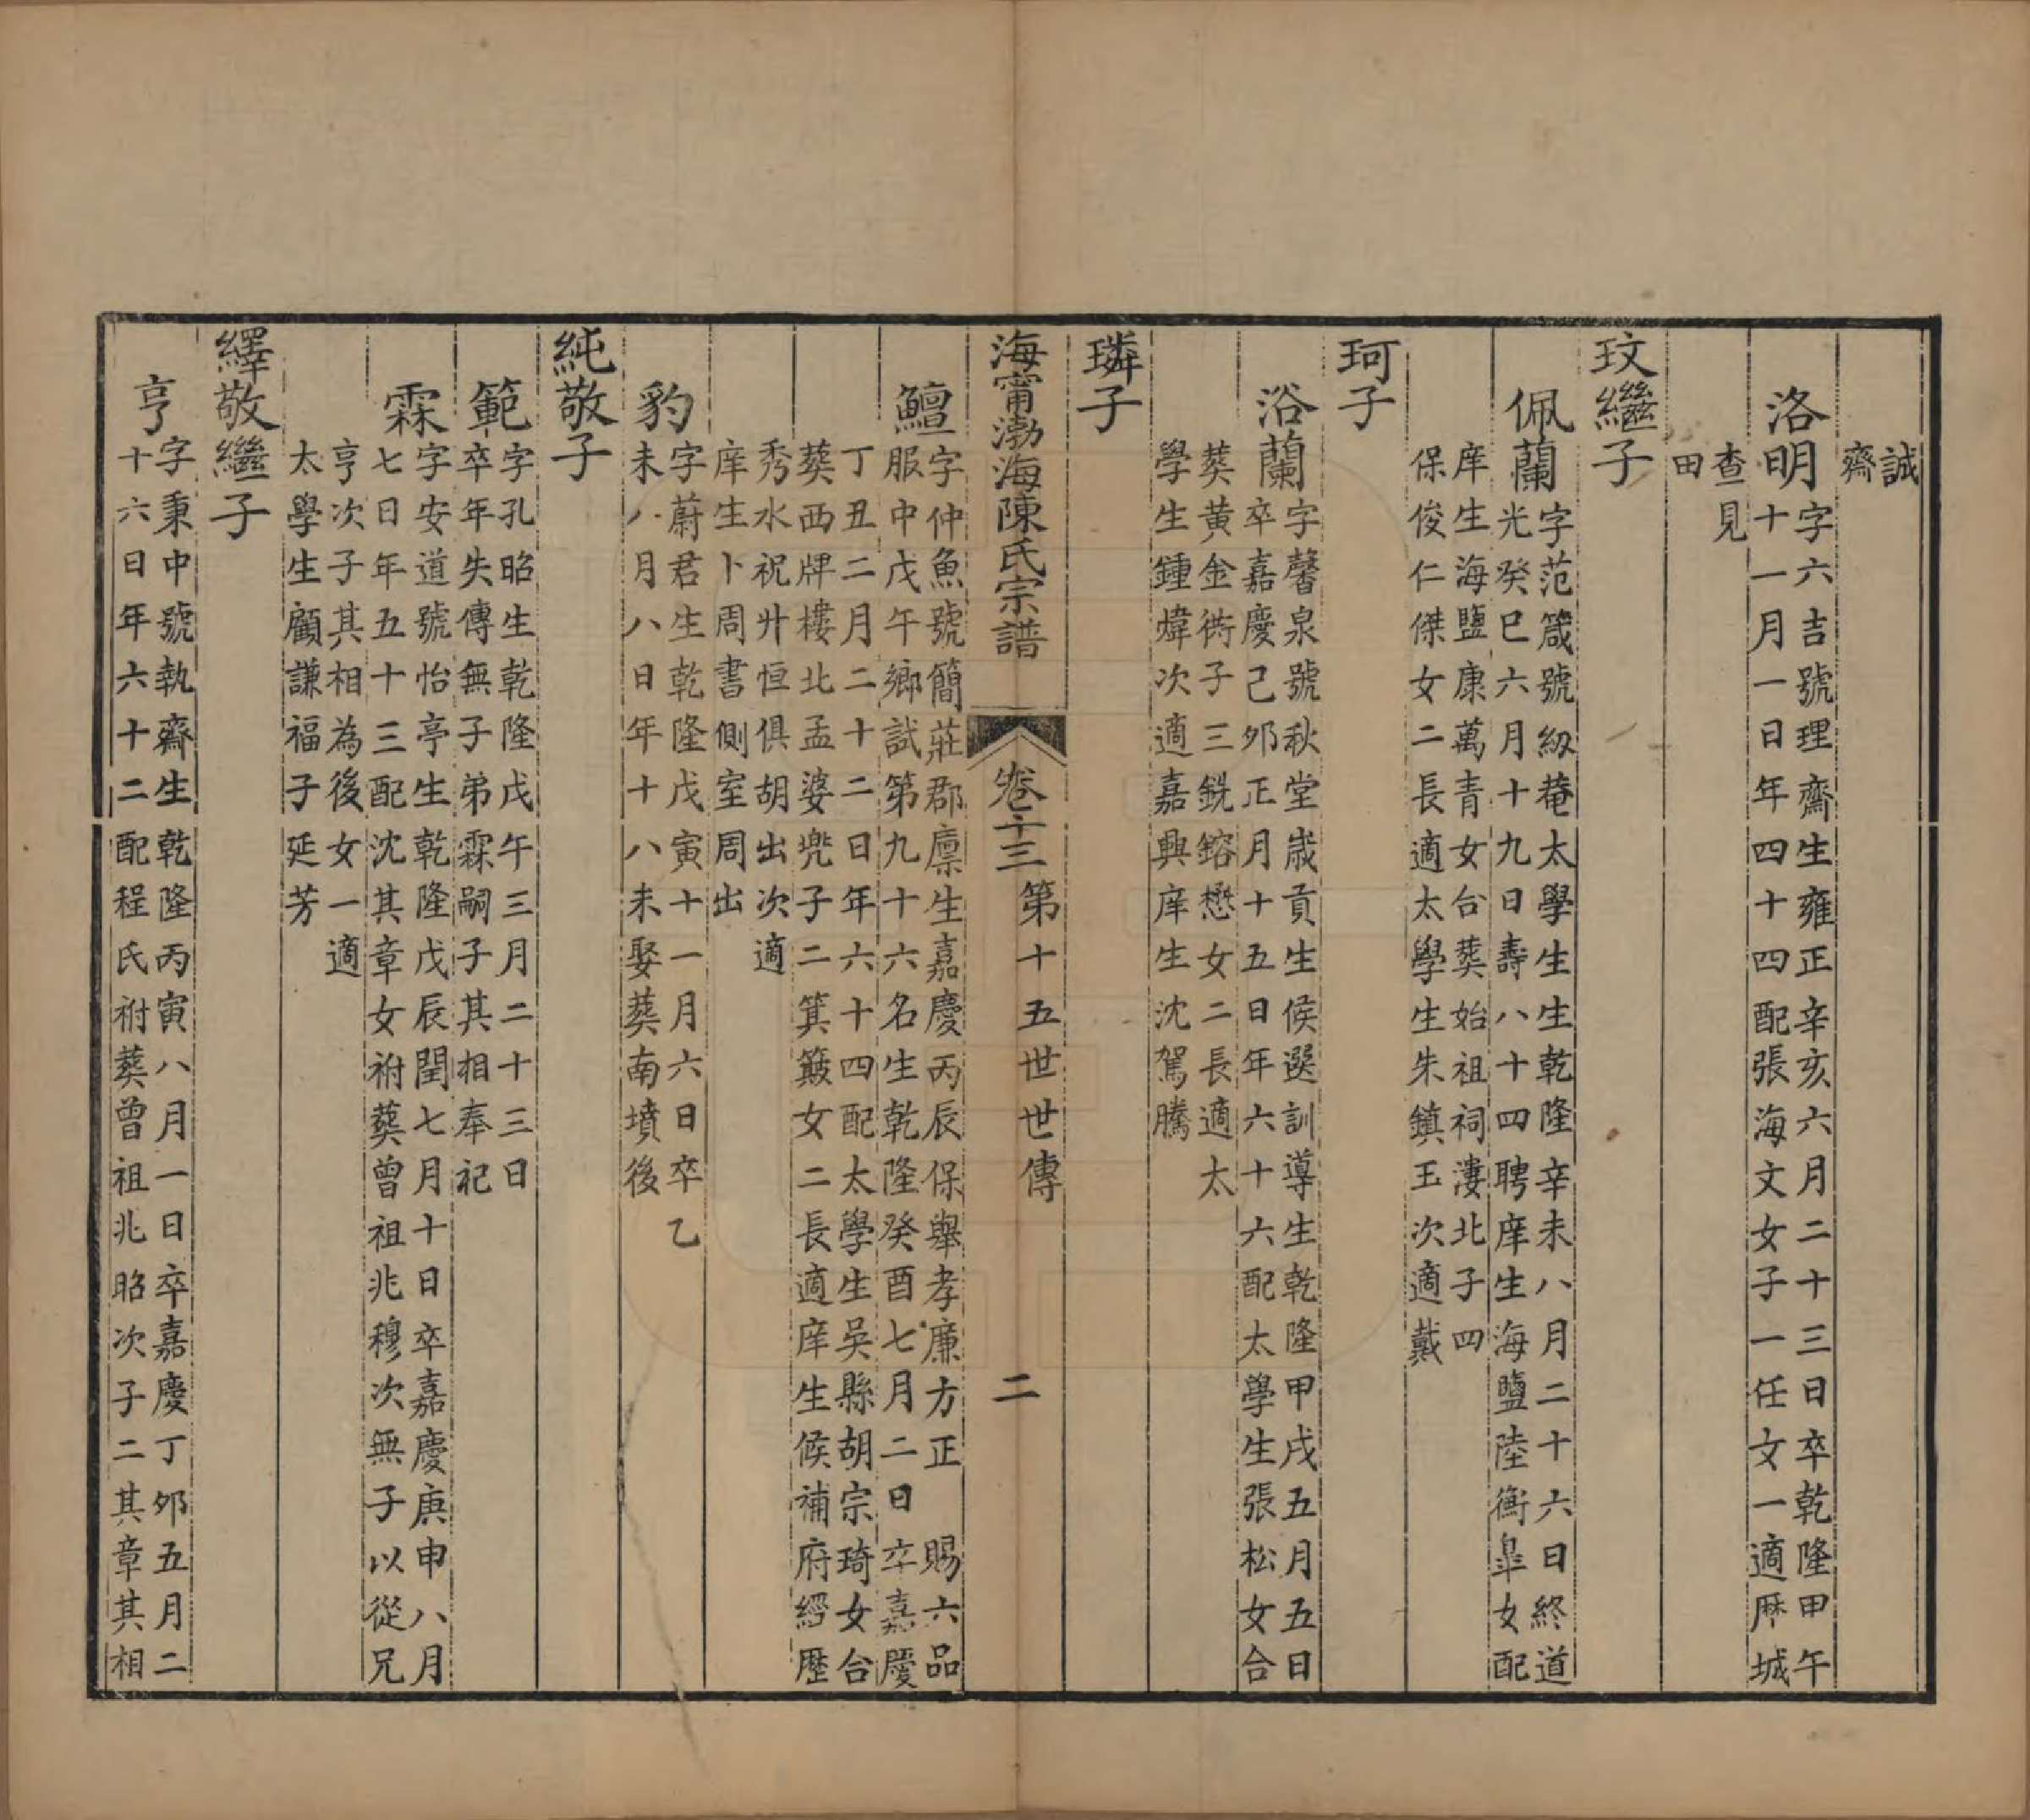 誠
齋
洛明
字六吉號理齋生雍正辛亥六月二十三日卒乾隆甲午
十一月一日年四十四配張海文女子一任女一適歷城
查見
田
玟繼子
佩蘭
字范箴號紉菴太學生生乾隆辛未八月二十六日終道
光癸巳六月十九日壽八十四聘庠生海鹽陸衡臯女配
庠生海鹽康萬青女合葬始祖祠漊北子四
保俊仁傑女二長適太學生朱鎮玉次適戴
珂子
浴蘭
字馨泉號秋堂歲貢生候選訓導生乾隆甲戌五月五日
卒嘉慶己夘正月十五日年六十六配太學生張松女合
葬黄金衖子三銑鎔懋女二長適太
學生鍾煒次適嘉興庠生沈駕騰
璘子
海甯渤海陳氏宗譜
卷十三
第十五世世傳
二
鱣
字仲魚號簡莊郡廪生嘉慶丙辰保舉孝廉方正 賜六品
服中戊午鄉試第九十六名生乾隆癸酉七月二日卒嘉慶
丁丑二月二十二日年六十四配太學生吳縣胡宗琦女合
葬西牌樓北孟婆兠子二箕簸女二長適庠生候補府經歷
秀水祝廾恒俱胡出次適
庠生卜周書側室周出
豹
字蔚君生乾隆戊寅十一月六日卒乙
未八月八日年十八未娶葬南墳後
純敬子
範
字孔昭生乾隆戊午三月二十三日
卒年失傳無子弟霖嗣子其相奉祀
霖
字安道號怡亭生乾隆戊辰閏七月十日卒嘉慶庚申八月
七日年五十三配沈其章女祔葬曾祖兆穆次無子以從兄
亨次子其相為後女一適
太學生顧謙福子延芳
繹敬繼子
亨
字秉中號執齋生乾隆丙寅八月一日卒嘉慶丁夘五月二
十六日年六十二配程氏祔葬曾祖兆昭次子二其章其相